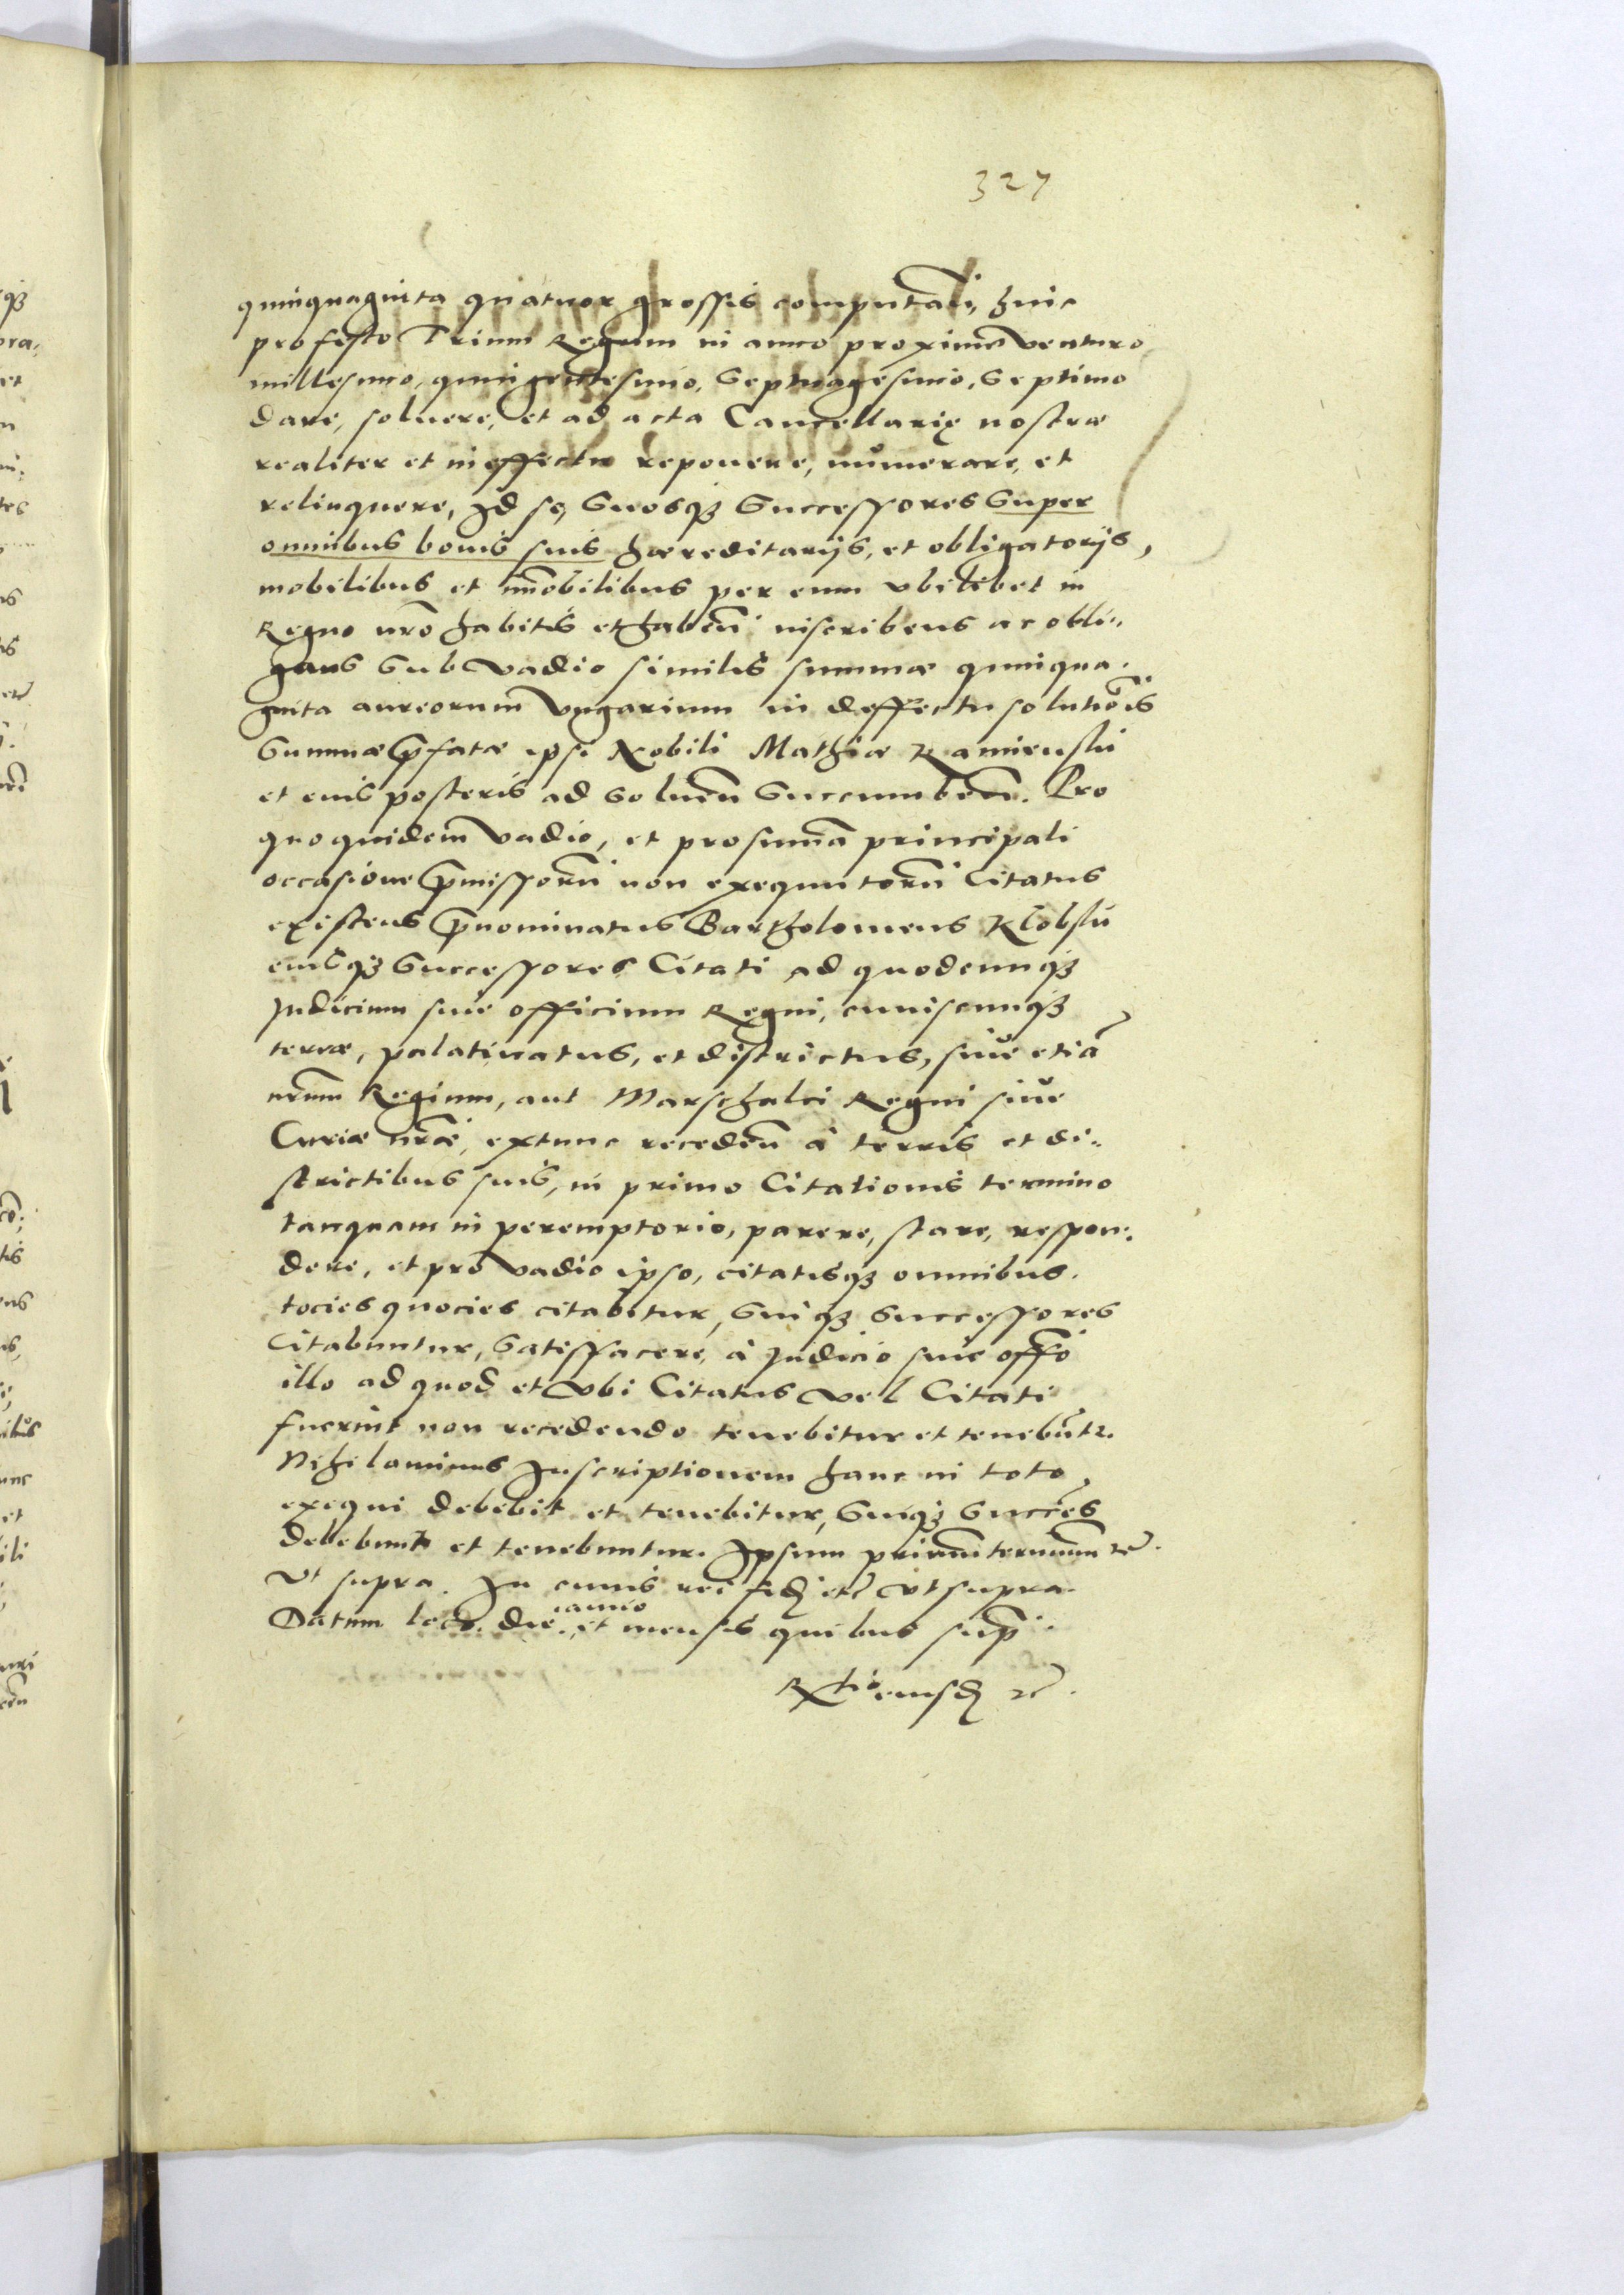 327
quinquaginta quatuor grossis computan̄, huic
pro festo Trium Regum in anno proxime venturo
millesimo, quingentesimo, septuagesimo, septimo
dare, soluere, et ad acta Cancellarię nostræ
realiter et in effectu reponere, numerare, et
relinquere, Id se, suosqꝫ Successores super
omnibus bonis suis hæreditarijs, et obligatorijs,
mobilibus et im̄obilibus per eum vbilibet in
Regno nr̄o habitis et haben̄ inscribens ac obli⸗
gans sub vadio similis summæ quinqua⸗
ginta aureorum Vngarium in deffectu solutiōis
Summæ p̄fatæ ipsi Nobili Mathiæ Kamienski
et eius posteris ad soluen̄ succumben̄. Pro
quo quidem vadio, et pro sum̄a principali
occasione p̄missorū non exequutorū Citatus
existens p̄nominatus Bartholomeus Klobski
eiusqꝫ Successores Citati ad quodcunqꝫ
Iudicium siue officium Regni, cuiuscunqꝫ
terræ, palatinatus, et districtus, siue etiā
nr̄um Regium, aut Marschalci Regni siue
Curiæ nr̄æ, extunc receden̄ à terris et di⸗
strictibus suis, in primo Citationis termino
tanquam in peremptorio, parere, stare, respon⸗
dere, et pro vadio ipso, citatisqꝫ omnibus.
tocies quocies citabitur, suiqꝫ Successores
Citabuntur, Satisfacere, à Iudicio siue offō
illo ad quod et vbi Citatus vel Citati
fuerint non recedendo tenebitur et tenebūtr.
Nihilominus Inscriptionem hanc in toto
exequi debebit et tenebitur, suiqꝫ Succēs
debebunt et tenebuntur. Ipsum primū terminum etc̄.
Vt supra. In cuius rei fidē etc̄ vt supra.
Datum loco. die. anno et mensis quibus supr̄.
Rtio eiusdē etc̄.